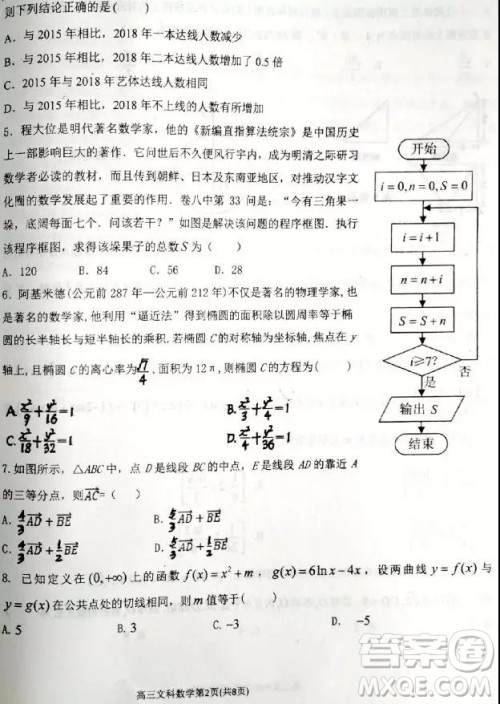 则下列结论正确的是(　　)
A．与 2015 年相比，2018 年一本达线人数减少
B．与 2015 年相比，2018 年二本达线人数增加了 0.5 倍
C．2015 年与 2018 年艺体达线人数相同
D．与 2015 年相比，2018 年不上线的人数有所增加
5．程大位是明代著名数学家，他的《新编直指算法统宗》是中国历史
上一部影响巨大的著作．它问世后不久便风行宇内，成为明清之际研习
数学者必读的教材，而且传到朝鲜、日本及东南亚地区，对推动汉字文
化圈的数学发展起了重要的作用．卷八中第 33 问是：“今有三角果一
垛，底阔每面七个．问该若干？”如图是解决该问题的程序框图．执行
该程序框图，求得该垛果子的总数 S 为（　　）
A．120　　B．84　　C．56　　D．28
开始
i=0,n=0,S=0
i=i+1
n=n+i
S=S+n
i≥7?
否
是
输出 S
结束
6．阿基米德(公元前 287 年—公元前 212 年)不仅是著名的物理学家，也
是著名的数学家，他利用“逼近法”得到椭圆的面积除以圆周率等于椭
圆的长半轴长与短半轴长的乘积．若椭圆 C 的对称轴为坐标轴，焦点在 y
轴上，且椭圆 C 的离心率为√7/4，面积为 12π，则椭圆 C 的方程为(　　)
A. x²/9+y²/16=1　　B. x²/3+y²/4=1
C. x²/18+y²/32=1　　D. x²/4+y²/36=1
7．如图所示，△ABC 中，点 D 是线段 BC 的中点，E 是线段 AD 的靠近 A
的三等分点，则AC=（　　）
A. 4/3AD+BE　　B. 5/3AD+BE
C. 4/3AD+1/2BE　　D. 5/3AD+1/2BE
8．已知定义在(0,+∞)上的函数 f(x)=x²+m，g(x)=6lnx-4x，设两曲线 y=f(x)与
y=g(x)在公共点处的切线相同，则 m 值等于(　　)
A. 5　　B. 3　　C. -3　　D. -5
高三文科数学第2页(共8页)